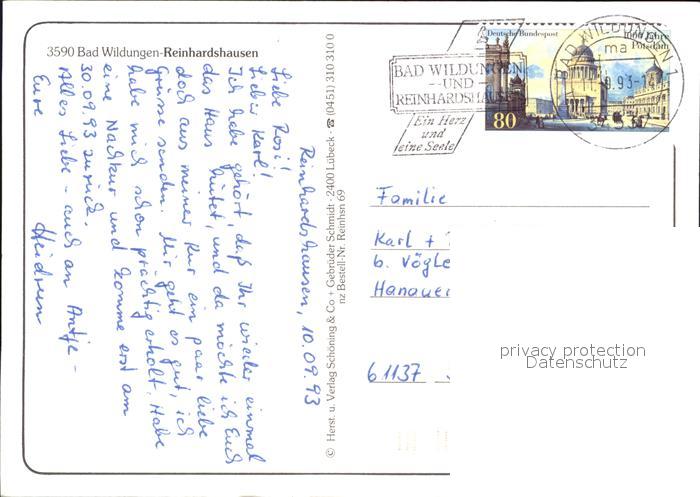 3590 Bad Wildungen-Reinhardshausen
Reinhardshausen, 10.09.93
Liebe Rosi!
Lieber Karl!
Ich habe gehört, daß Ihr wieder einmal
das Haus hütet, und da möchte ich Euch
doch aus meiner Kur ein paar liebe
Grüsse senden. Mir geht es gut, ich
habe mich schon prächtig erholt. Habe
eine Nachkur und komme erst am
30.09.93 zurück.
Alles Liebe - auch an Antje -
Eure Heidrun
© Herst. u. Verlag Schöning & Co + Gebrüder Schmidt · 2400 Lübeck · ☎ (0451) 310 310 0
nz Bestell-Nr. Reinhsn 69
BAD WILDUNGEN
UND
REINHARDSHAUSEN
Ein Herz
und
eine Seele
Deutsche Bundespost
1000 Jahre
Potsdam
80
BAD WILDUNGEN 1
ma
9.93-1
Familie
Karl +
b. Vögle
Hanauer
61137
privacy protection
Datenschutz